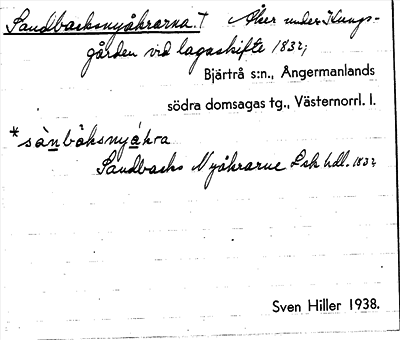 Sandbacksnyåkrarna. T Åker under Kungs-
gården vid lagaskifte 1832;
Bjärtrå s:n., Ångermanlands
södra domsagas tg., Västernorrl. l.
*sànbàksnyåkra
Sandbacks Nyåkrarne Lsk hdl. 1832
Sven Hiller 1938.